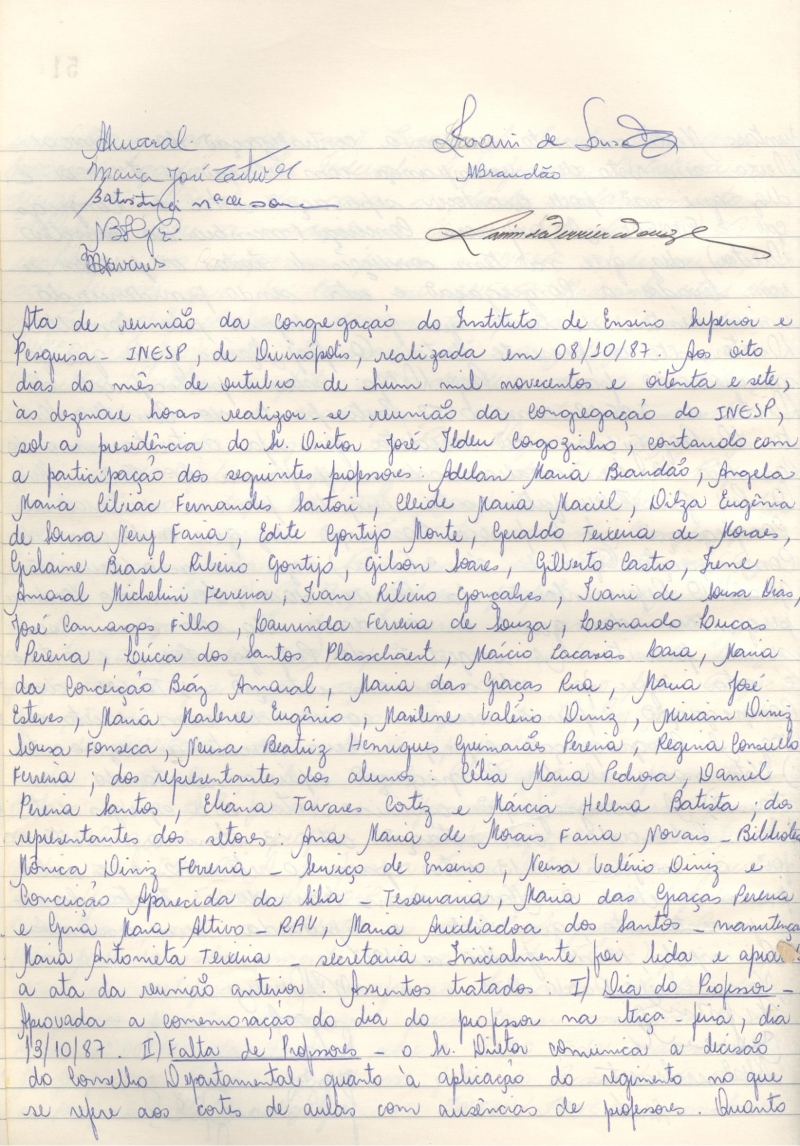 Amaral
Ivani de Sousa
Maria José
ABrandão
Tavares
Ata de reunião da congregação do Instituto de Ensino Superior e
Pesquisa - INESP, de Divinópolis, realizada em 08/10/87. Aos oito
dias do mês de outubro de hum mil novecentos e oitenta e sete,
às dezenove horas realizou-se reunião da congregação do INESP,
sob a presidência do Sr. Diretor José Ildeu Corgozinho, contando com
a participação dos seguintes professores: Adelan Maria Brandão, Angela
Maria Liliac Fernandes Sartori, Cleide Maria Maciel, Dilza Eugênia
de Sousa Nery Faria, Edite Gontijo Monte, Geraldo Teixeira de Moraes,
Gislaine Brasil Ribeiro Gontijo, Gilson Soares, Gilberto Castro, Irene
Amaral Michelini Ferreira, Ivan Ribeiro Gonçalves, Ivani de Sousa Dias,
José Camargos Filho, Laurinda Ferreira de Souza, Leonardo Lucas
Pereira, Lúcia dos Santos Plasschaert, Márcio Lacarias Lara, Maria
da Conceição Bráz Amaral, Maria das Graças Rua, Maria José
Esteves, Maria Marlene Eugênio, Marilene Valério Diniz, Miriam Diniz
Sousa Fonseca, Neusa Beatriz Henriques Guimarães Pereira, Regina Consuelo
Ferreira; dos representantes dos alunos: Célia Maria Pedrosa, Daniel
Pereira Santos, Eliana Tavares Cortez e Márcia Helena Batista; dos
representantes dos setores. Ana Maria de Morais Faria Novais - Bibliote
Mônica Diniz Ferreira - Serviço de Ensino, Neusa Valério Diniz e
Conceição Aparecida da Silva - Tesouraria, Maria das Graças Pereira
e Gina Mara Altivo - RAV, Maria Auxiliadora dos Santos - manutença
Maria Antonieta Teixeira - secretaria. Inicialmente foi lida e aprov
a ata da reunião anterior. Assuntos tratados: I) Dia do Professor -
Aprovada a comemoração do dia do professor na terça-feira, dia
13/10/87. II) Falta de Professores - o Sr. Diretor comunica a decisão
do Conselho Departamental quanto à aplicação do regimento no que
se refere aos cortes de aulas com ausências de professores. Quanto